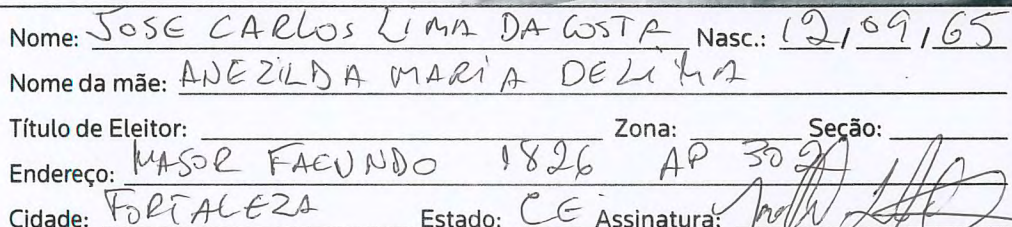 Nome: JOSE CARLOS LIMA DA COSTA Nasc.: 12/09/65
Nome da mãe: ANEZILDA MARIA DE LIMA
Título de Eleitor: Zona: Seção:
Endereço: MAJOR FACUNDO 1826 AP 302
Cidade: FORTALEZA Estado: CE Assinatura: